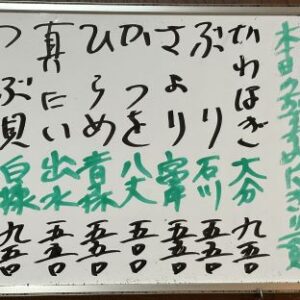 本日のおすすめにぎり
かわはぎ 大分 九五〇
ぶり 石川 五五〇
さより 五五〇
かつを 八丈 五五〇
ひらめ 青森 五五〇
真だい 出水 五五〇
つぶ貝 白糠 九五〇